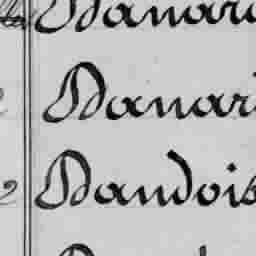 Danar
Danar
Dandois